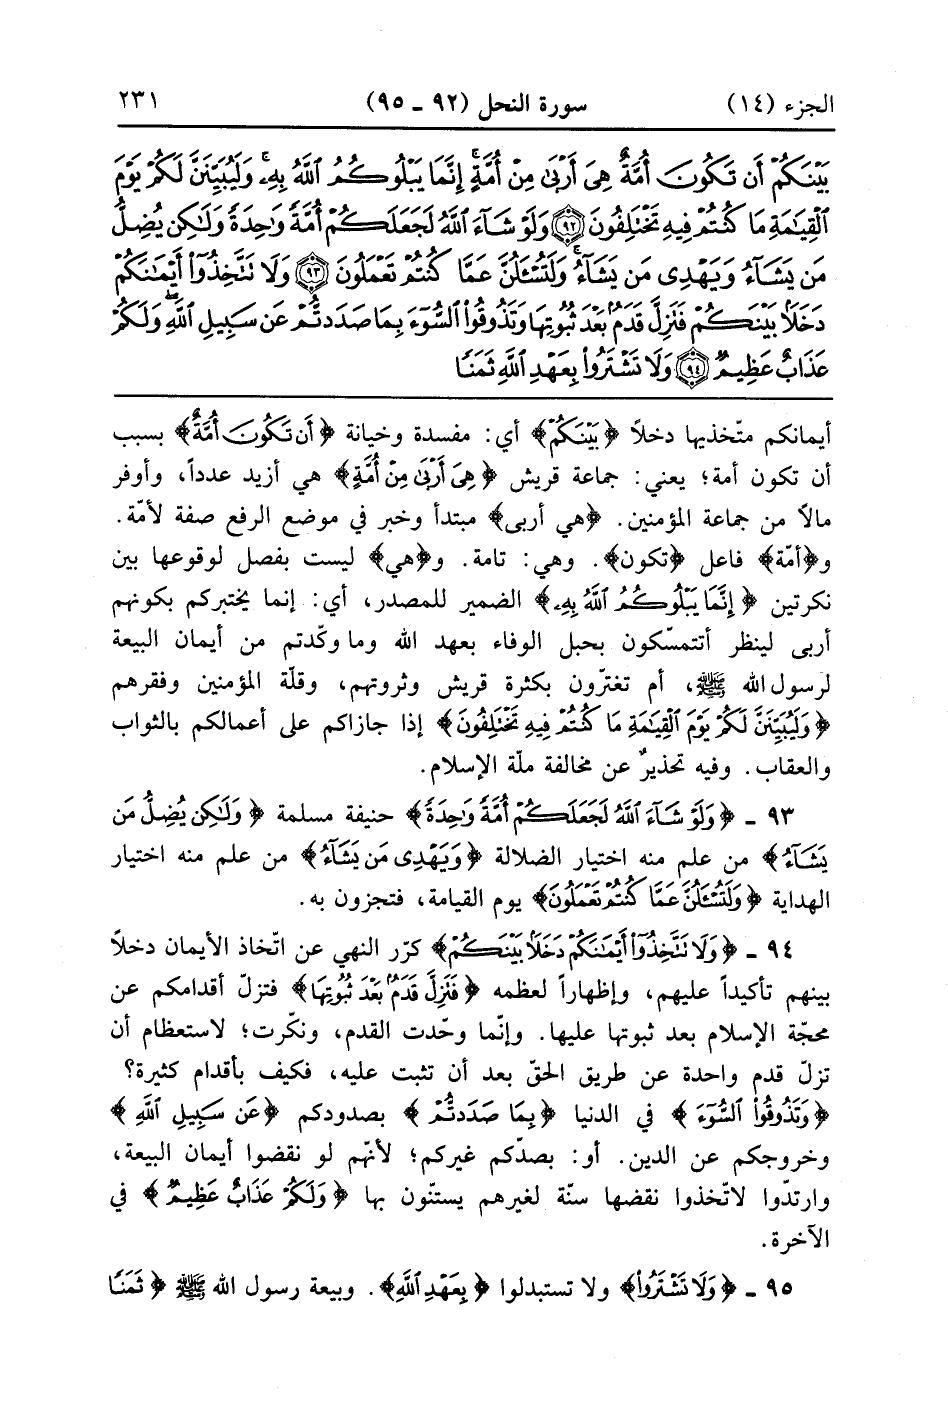 الجزء (١٤) سورة النحل (٩٢ ـ ٩٥) ٢٣١
بَيْنَكُمْ أَن تَكُونَ أُمَّةٌ هِيَ أَرْبَىٰ مِنْ أُمَّةٍ إِنَّمَا يَبْلُوكُمُ ٱللَّهُ بِهِۦ وَلَيُبَيِّنَنَّ لَكُمْ يَوْمَ
ٱلْقِيَٰمَةِ مَا كُنتُمْ فِيهِ تَخْتَلِفُونَ ﴿٩٢﴾ وَلَوْ شَآءَ ٱللَّهُ لَجَعَلَكُمْ أُمَّةً وَٰحِدَةً وَلَٰكِن يُضِلُّ
مَن يَشَآءُ وَيَهْدِى مَن يَشَآءُ وَلَتُسْـَٔلُنَّ عَمَّا كُنتُمْ تَعْمَلُونَ ﴿٩٣﴾ وَلَا تَتَّخِذُوٓا۟ أَيْمَٰنَكُمْ
دَخَلًۢا بَيْنَكُمْ فَتَزِلَّ قَدَمٌۢ بَعْدَ ثُبُوتِهَا وَتَذُوقُوا۟ ٱلسُّوٓءَ بِمَا صَدَدتُّمْ عَن سَبِيلِ ٱللَّهِ وَلَكُمْ
عَذَابٌ عَظِيمٌ ﴿٩٤﴾ وَلَا تَشْتَرُوا۟ بِعَهْدِ ٱللَّهِ ثَمَنًا
أيمانكم متّخذيها دخلاً ﴿بَيْنَكُمْ﴾ أي: مفسدة وخيانة ﴿أَن تَكُونَ أُمَّةٌ﴾ بسبب
أن تكون أمة؛ يعني: جماعة قريش ﴿هِيَ أَرْبَىٰ مِنْ أُمَّةٍ﴾ هي أزيد عدداً، وأوفر
مالاً من جماعة المؤمنين. ﴿هي أربى﴾ مبتدأ وخبر في موضع الرفع صفة لأمّة.
و﴿أمّة﴾ فاعل ﴿تكون﴾. وهي: تامة. و﴿هي﴾ ليست بفصل لوقوعها بين
نكرتين ﴿إِنَّمَا يَبْلُوكُمُ ٱللَّهُ بِهِۦ﴾ الضمير للمصدر، أي: إنما يختبركم بكونهم
أربى لينظر أتتمسّكون بحبل الوفاء بعهد الله وما وكّدتم من أيمان البيعة
لرسول الله ﷺ، أم تغترّون بكثرة قريش وثروتهم، وقلّة المؤمنين وفقرهم
﴿وَلَيُبَيِّنَنَّ لَكُمْ يَوْمَ ٱلْقِيَٰمَةِ مَا كُنتُمْ فِيهِ تَخْتَلِفُونَ﴾ إذا جازاكم على أعمالكم بالثواب
والعقاب. وفيه تحذيرٌ عن مخالفة ملّة الإسلام.
٩٣ ـ ﴿وَلَوْ شَآءَ ٱللَّهُ لَجَعَلَكُمْ أُمَّةً وَٰحِدَةً﴾ حنيفة مسلمة ﴿وَلَٰكِن يُضِلُّ مَن
يَشَآءُ﴾ من علم منه اختيار الضلالة ﴿وَيَهْدِى مَن يَشَآءُ﴾ من علم منه اختيار
الهداية ﴿وَلَتُسْـَٔلُنَّ عَمَّا كُنتُمْ تَعْمَلُونَ﴾ يوم القيامة، فتجزون به.
٩٤ ـ ﴿وَلَا تَتَّخِذُوٓا۟ أَيْمَٰنَكُمْ دَخَلًۢا بَيْنَكُمْ﴾ كرّر النهي عن اتّخاذ الأيمان دخلاً
بينهم تأكيداً عليهم، وإظهاراً لعظمه ﴿فَتَزِلَّ قَدَمٌۢ بَعْدَ ثُبُوتِهَا﴾ فتزلّ أقدامكم عن
محجّة الإسلام بعد ثبوتها عليها. وإنّما وحّدت القدم، ونكّرت؛ لاستعظام أن
تزلّ قدم واحدة عن طريق الحقّ بعد أن تثبت عليه، فكيف بأقدام كثيرة؟
﴿وَتَذُوقُوا۟ ٱلسُّوٓءَ﴾ في الدنيا ﴿بِمَا صَدَدتُّمْ﴾ بصدودكم ﴿عَن سَبِيلِ ٱللَّهِ﴾
وخروجكم عن الدين. أو: بصدّكم غيركم؛ لأنّهم لو نقضوا أيمان البيعة،
وارتدّوا لاتّخذوا نقضها سنّة لغيرهم يستنّون بها ﴿وَلَكُمْ عَذَابٌ عَظِيمٌ﴾ في
الآخرة.
٩٥ ـ ﴿وَلَا تَشْتَرُوا۟﴾ ولا تستبدلوا ﴿بِعَهْدِ ٱللَّهِ﴾. وبيعة رسول الله ﷺ ﴿ثَمَنًا